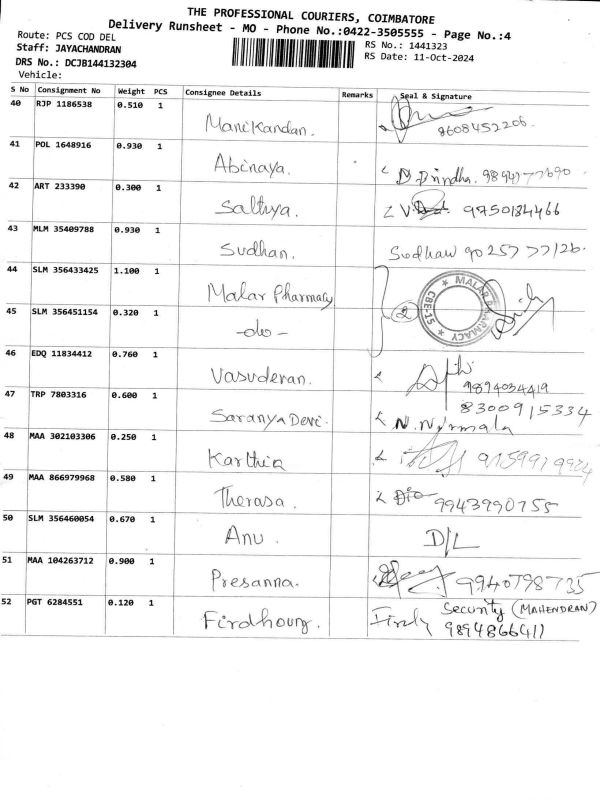 THE PROFESSIONAL COURIERS, COIMBATORE
Delivery Runsheet - MO - Phone No.:0422-3505555 - Page No.:4
Route: PCS COD DEL
RS No.: 1441323
Staff: JAYACHANDRAN
RS Date: 11-Oct-2024
DRS No.: DCJB144132304
Vehicle:
S No Consignment No Weight PCS Consignee Details Remarks Seal & Signature
40 RJP 1186538 0.510 1 Manikandan. 8608452206.
41 POL 1648916 0.930 1 Abinaya.
42 ART 233390 0.300 1 Sathya. 9750184466
43 MLM 35409788 0.930 1 Sudhan. Sudhan 9025777126.
44 SLM 356433425 1.100 1 Malar Pharmacy 2 MALAR PHARMACY CBE-15
45 SLM 356451154 0.320 1 -do-
46 EDQ 11834412 0.760 1 Vasudevan. 9894034419
47 TRP 7803316 0.600 1 Saranya Devi. 8300915334
N. Nirmala
48 MAA 302103306 0.250 1 Karthia 9159919924
49 MAA 866979968 0.580 1 Therasa. 9943990755
50 SLM 356460054 0.670 1 Anu. D/L
51 MAA 104263712 0.900 1 Presanna. 9940798735
52 PGT 6284551 0.120 1 Firdhous. Firdy Security (MAHENDRAN)
9894866411